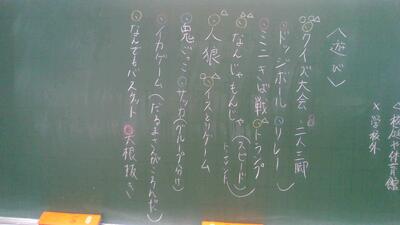 〈遊び〉
クイズ大会 二人三脚
ドッジボール リレー
ミニさば戦 トランプ
なんじゃもんじゃ(スピード)
人狼 イスとりゲーム
鬼ごっこ サッカー(グループ分け)
イカゲーム(だるまさんがころんだ)
なんでもバスケット 大根抜き
△校庭や体育館
× 学校外